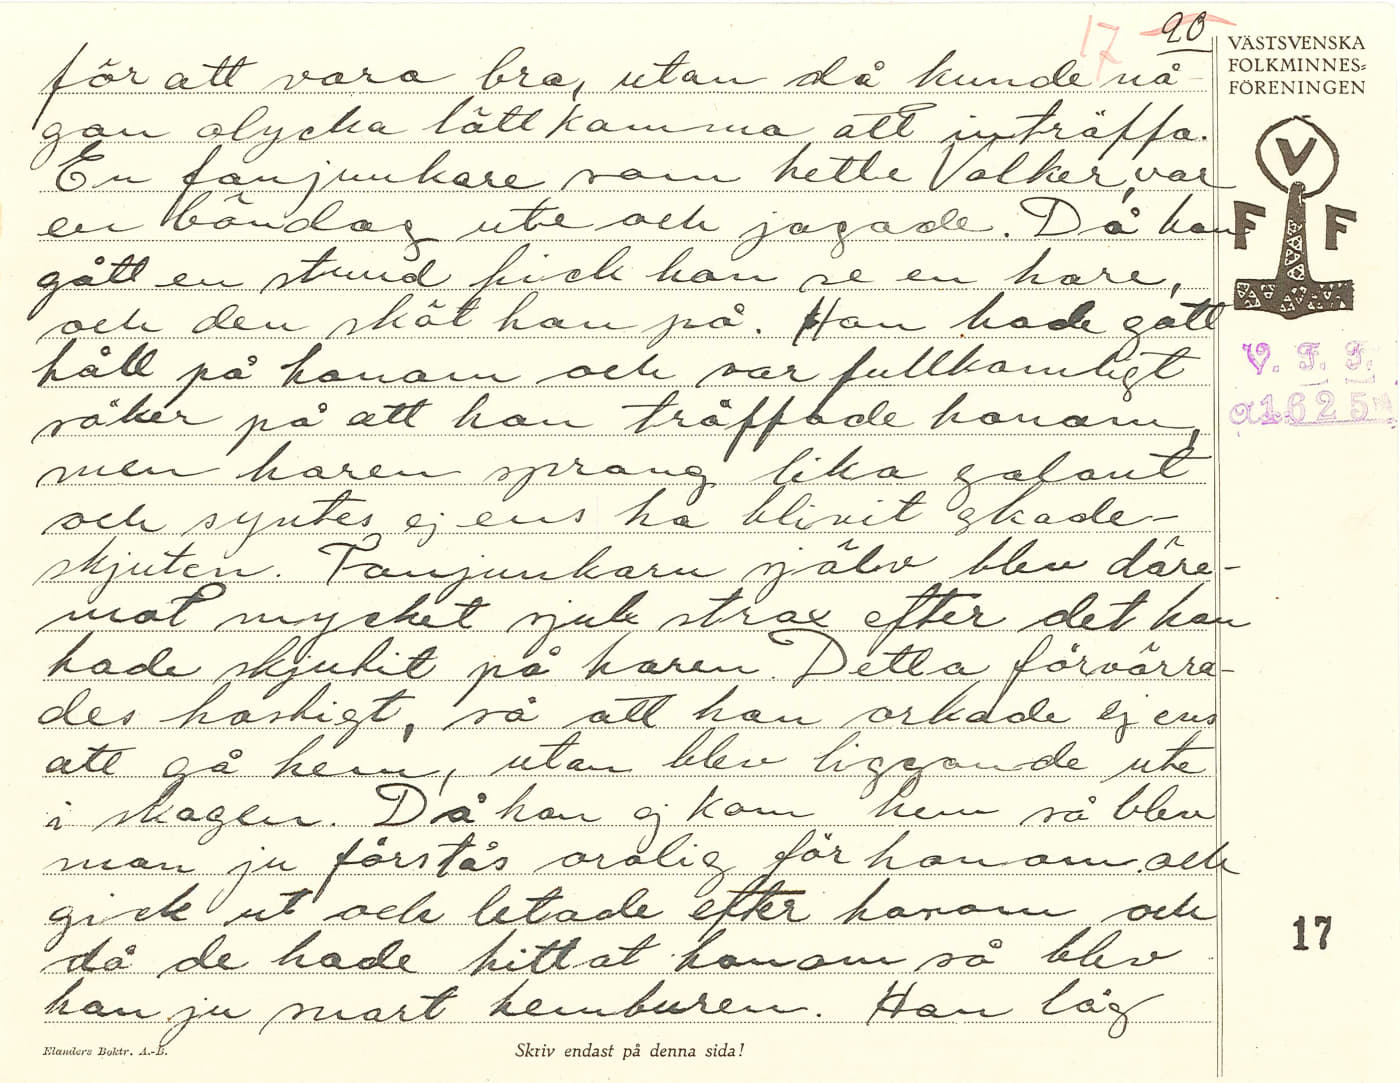 17 20
VÄSTSVENSKA
FOLKMINNES=
FÖRENINGEN
för att vara bra, utan då kunde nå-
gon olycka lätt komma att inträffa.
En fanjunkare som hette Valker, var
en böndag ute och jagade. Då han
gått en stund fick han se en hare,
och den sköt han på. Han hade gått
håll på honom och var fullkomligt
säker på att han träffade honom,
men haren sprang lika galant
och syntes ej ens ha blivit skade-
skjuten. Fanjunkarn själv blev däre-
mot mycket sjuk strax efter det han
hade skjutit på haren. Detta förvärra-
des hastigt, så att han orkade ej ens
att gå hem, utan blev liggande ute
i skogen. Då han ej kom hem så blev
man ju förstås orolig för honom och
gick ut och letade efter honom och
då de hade hittat honom så blev
han ju snart hemburen. Han låg
V
F F
V. F. F.
a1625
17
Elanders Boktr. A.-B.
Skriv endast på denna sida!